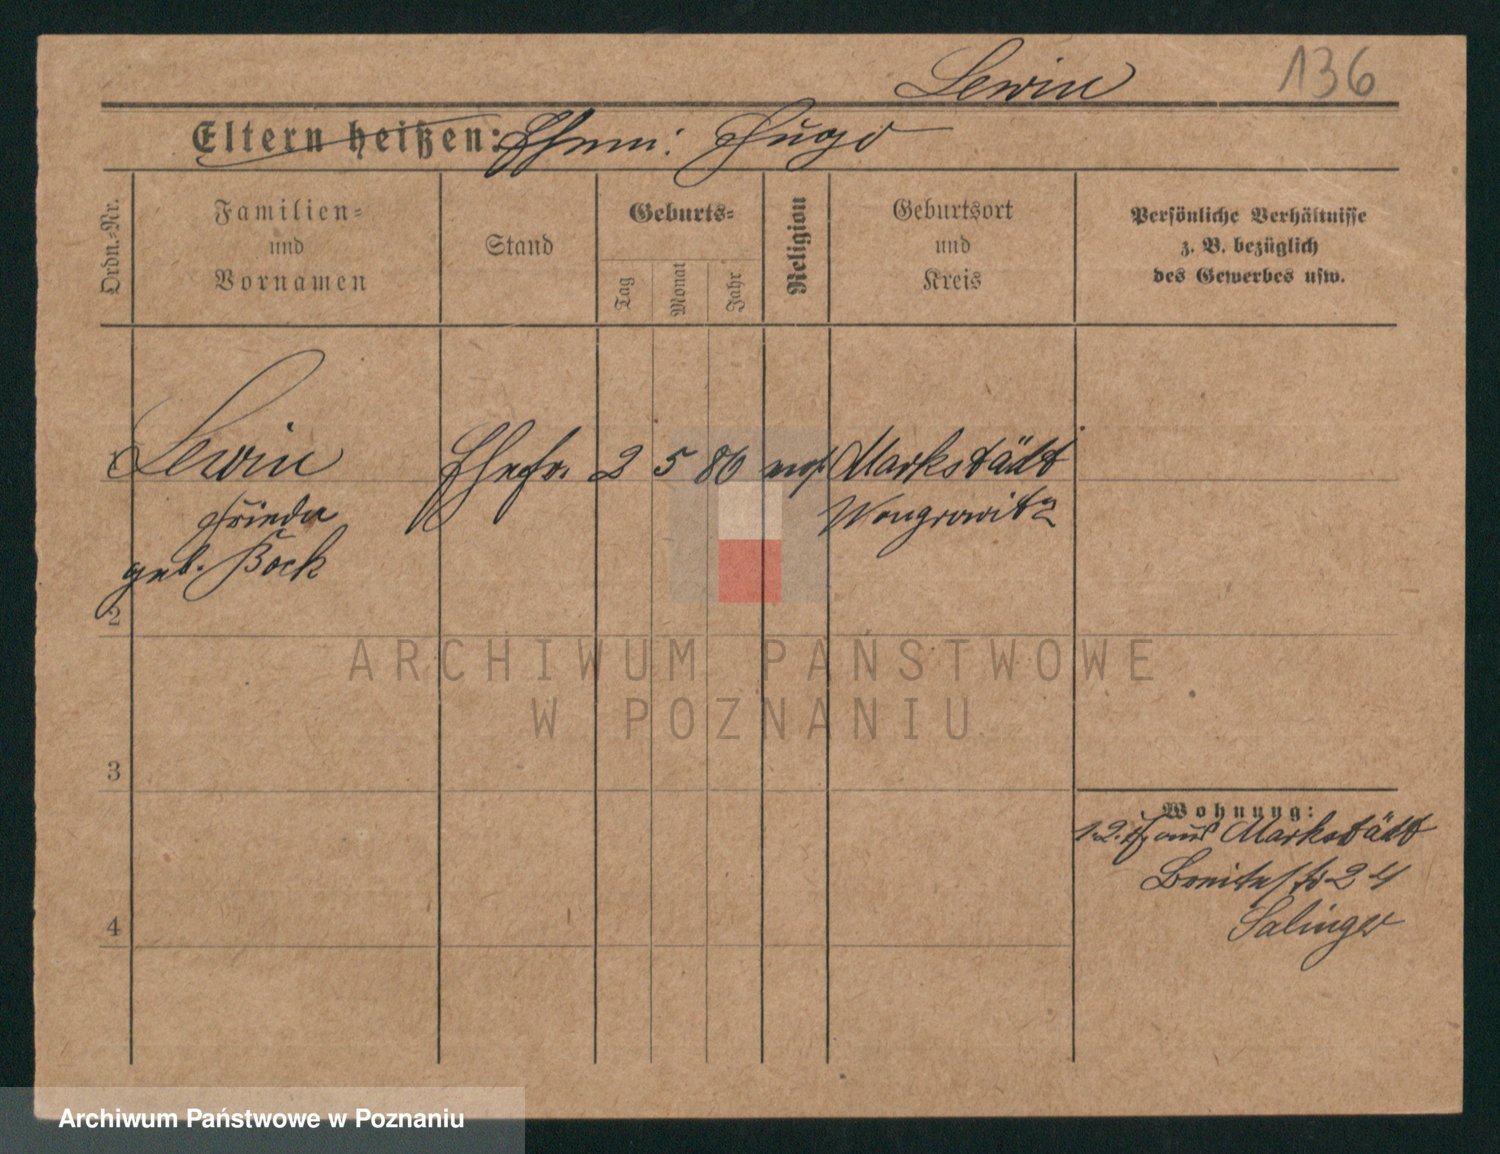 Lewin 136
Eltern heißen: Ehem: Hugo
Ordn.-Nr.
Familien-
und
Vornamen
Stand
Geburts-
Tag
Monat
Jahr
Religion
Geburtsort
und
Kreis
Persönliche Verhältnisse
z. B. bezüglich
des Gewerbes usw.
1 Lewin Ehefr. 2 5 86 mos. Markstädt
Frieda Wongrowitz
geb. Bock
2
ARCHIWUM PAŃSTWOWE
W POZNANIU
3
Wohnung:
aus Markstädt
Breitestr 24
Salinger
4
Archiwum Państwowe w Poznaniu